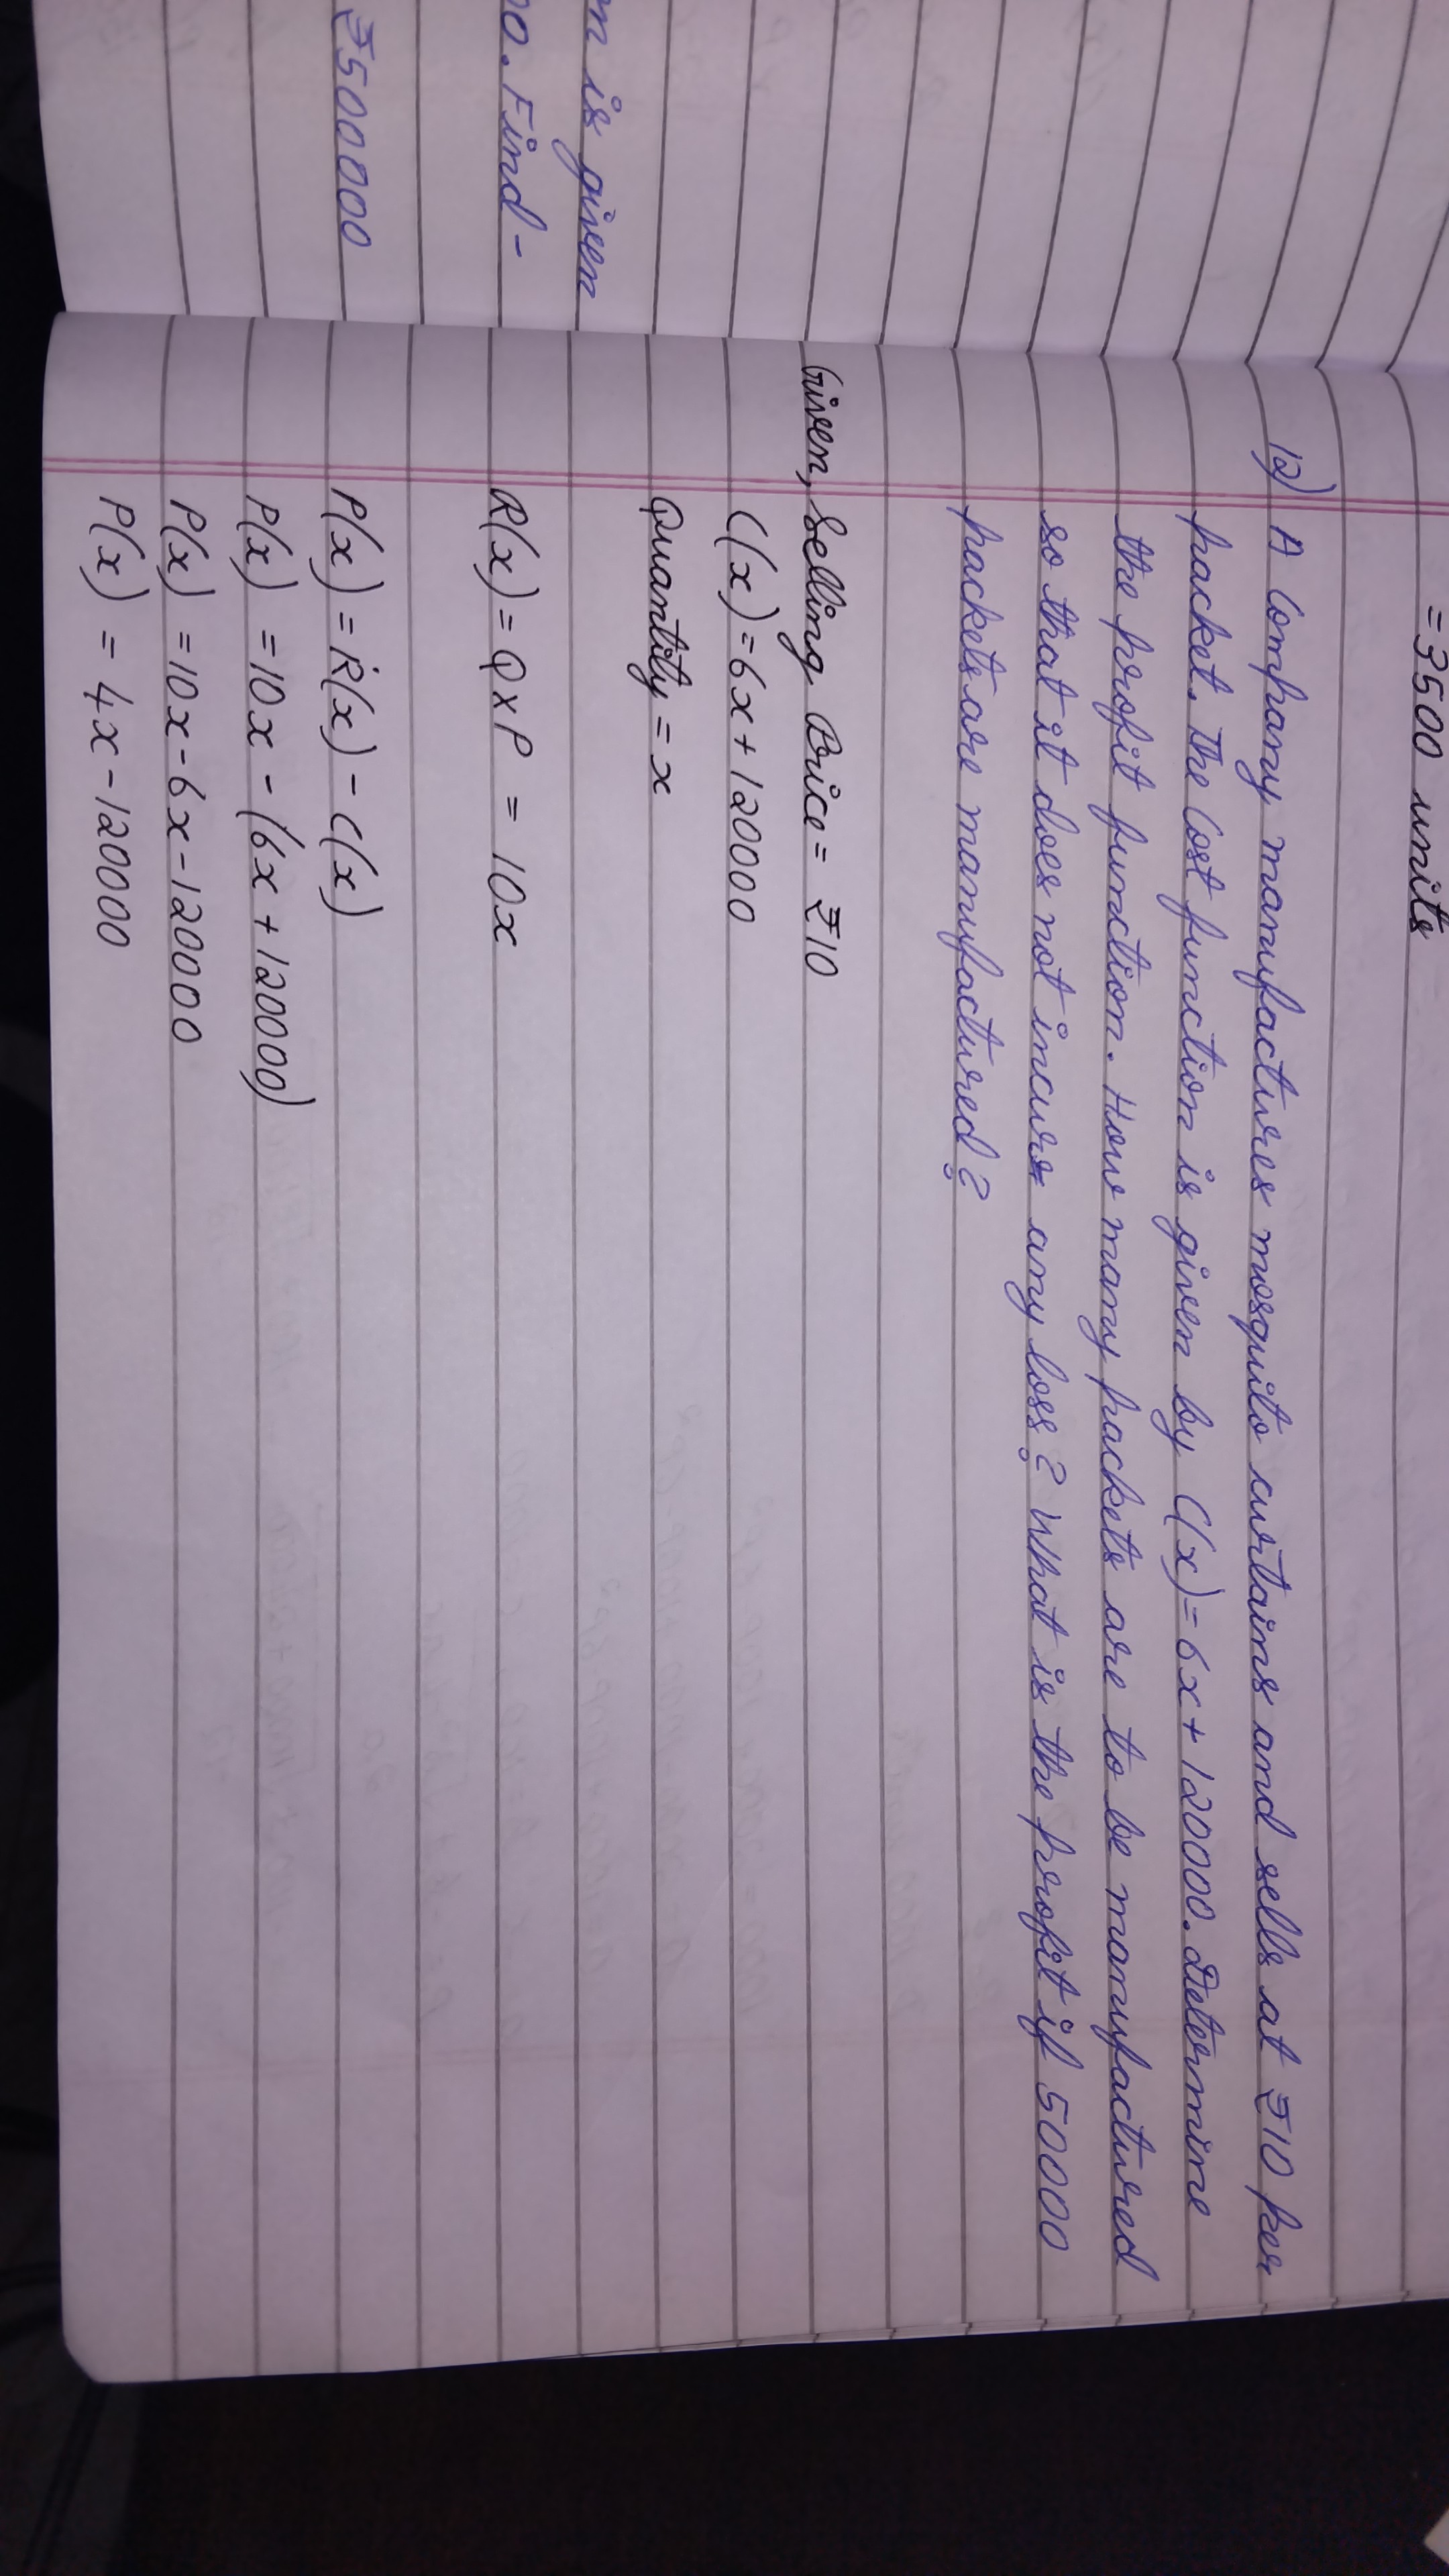 = 3500 units
m is given
00. Find -
₹500000
12) A Company manufactures mosquito curtains and sells at ₹10 per
packet. The Cost function is given by C(x) = 6x + 120000. Determine
the profit function. How many packets are to be manufactured
so that it does not incurs any loss? What is the profit if 50000
packets are manufactured?
Given, Selling Price = ₹10
C(x) = 6x + 120000
Quantity = x
R(x) = Q x P = 10x
P(x) = R(x) - C(x)
P(x) = 10x - (6x + 120000)
P(x) = 10x - 6x - 120000
P(x) = 4x - 120000